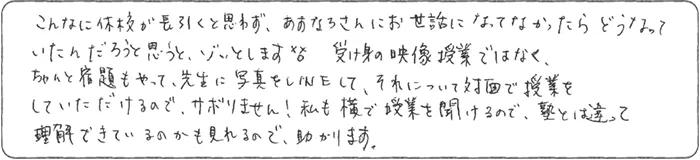 こんなに休校が長引くと思わず、あすなろさんにお世話になってなかったらどうなって
いたんだろうと思うと、ゾッとします💦 受け身の映像授業ではなく、
ちゃんと宿題もやって、先生に写真をLINEして、それについて対面で授業を
していただけるので、サボりません！私も横で授業を聞けるので、塾とは違って
理解できているのかも見れるので、助かります。